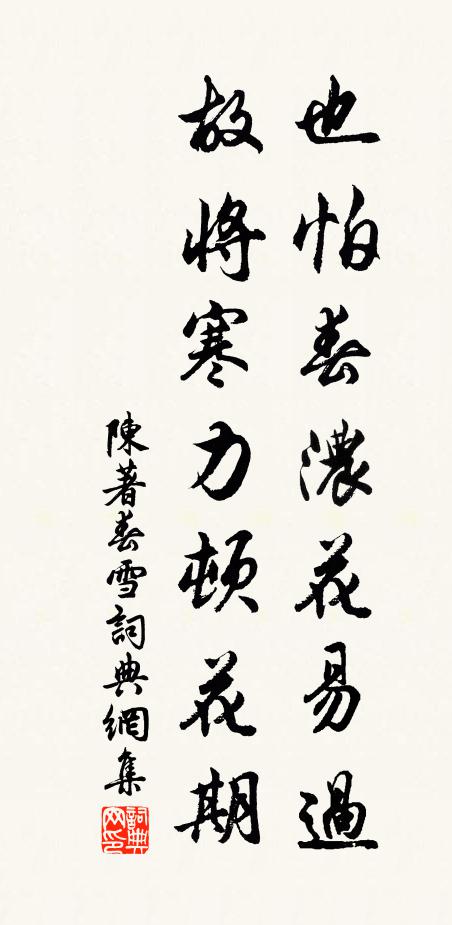 也怕春濃花易過
故將寒力頓花期
陳著春雪詞典網集
詞典网印